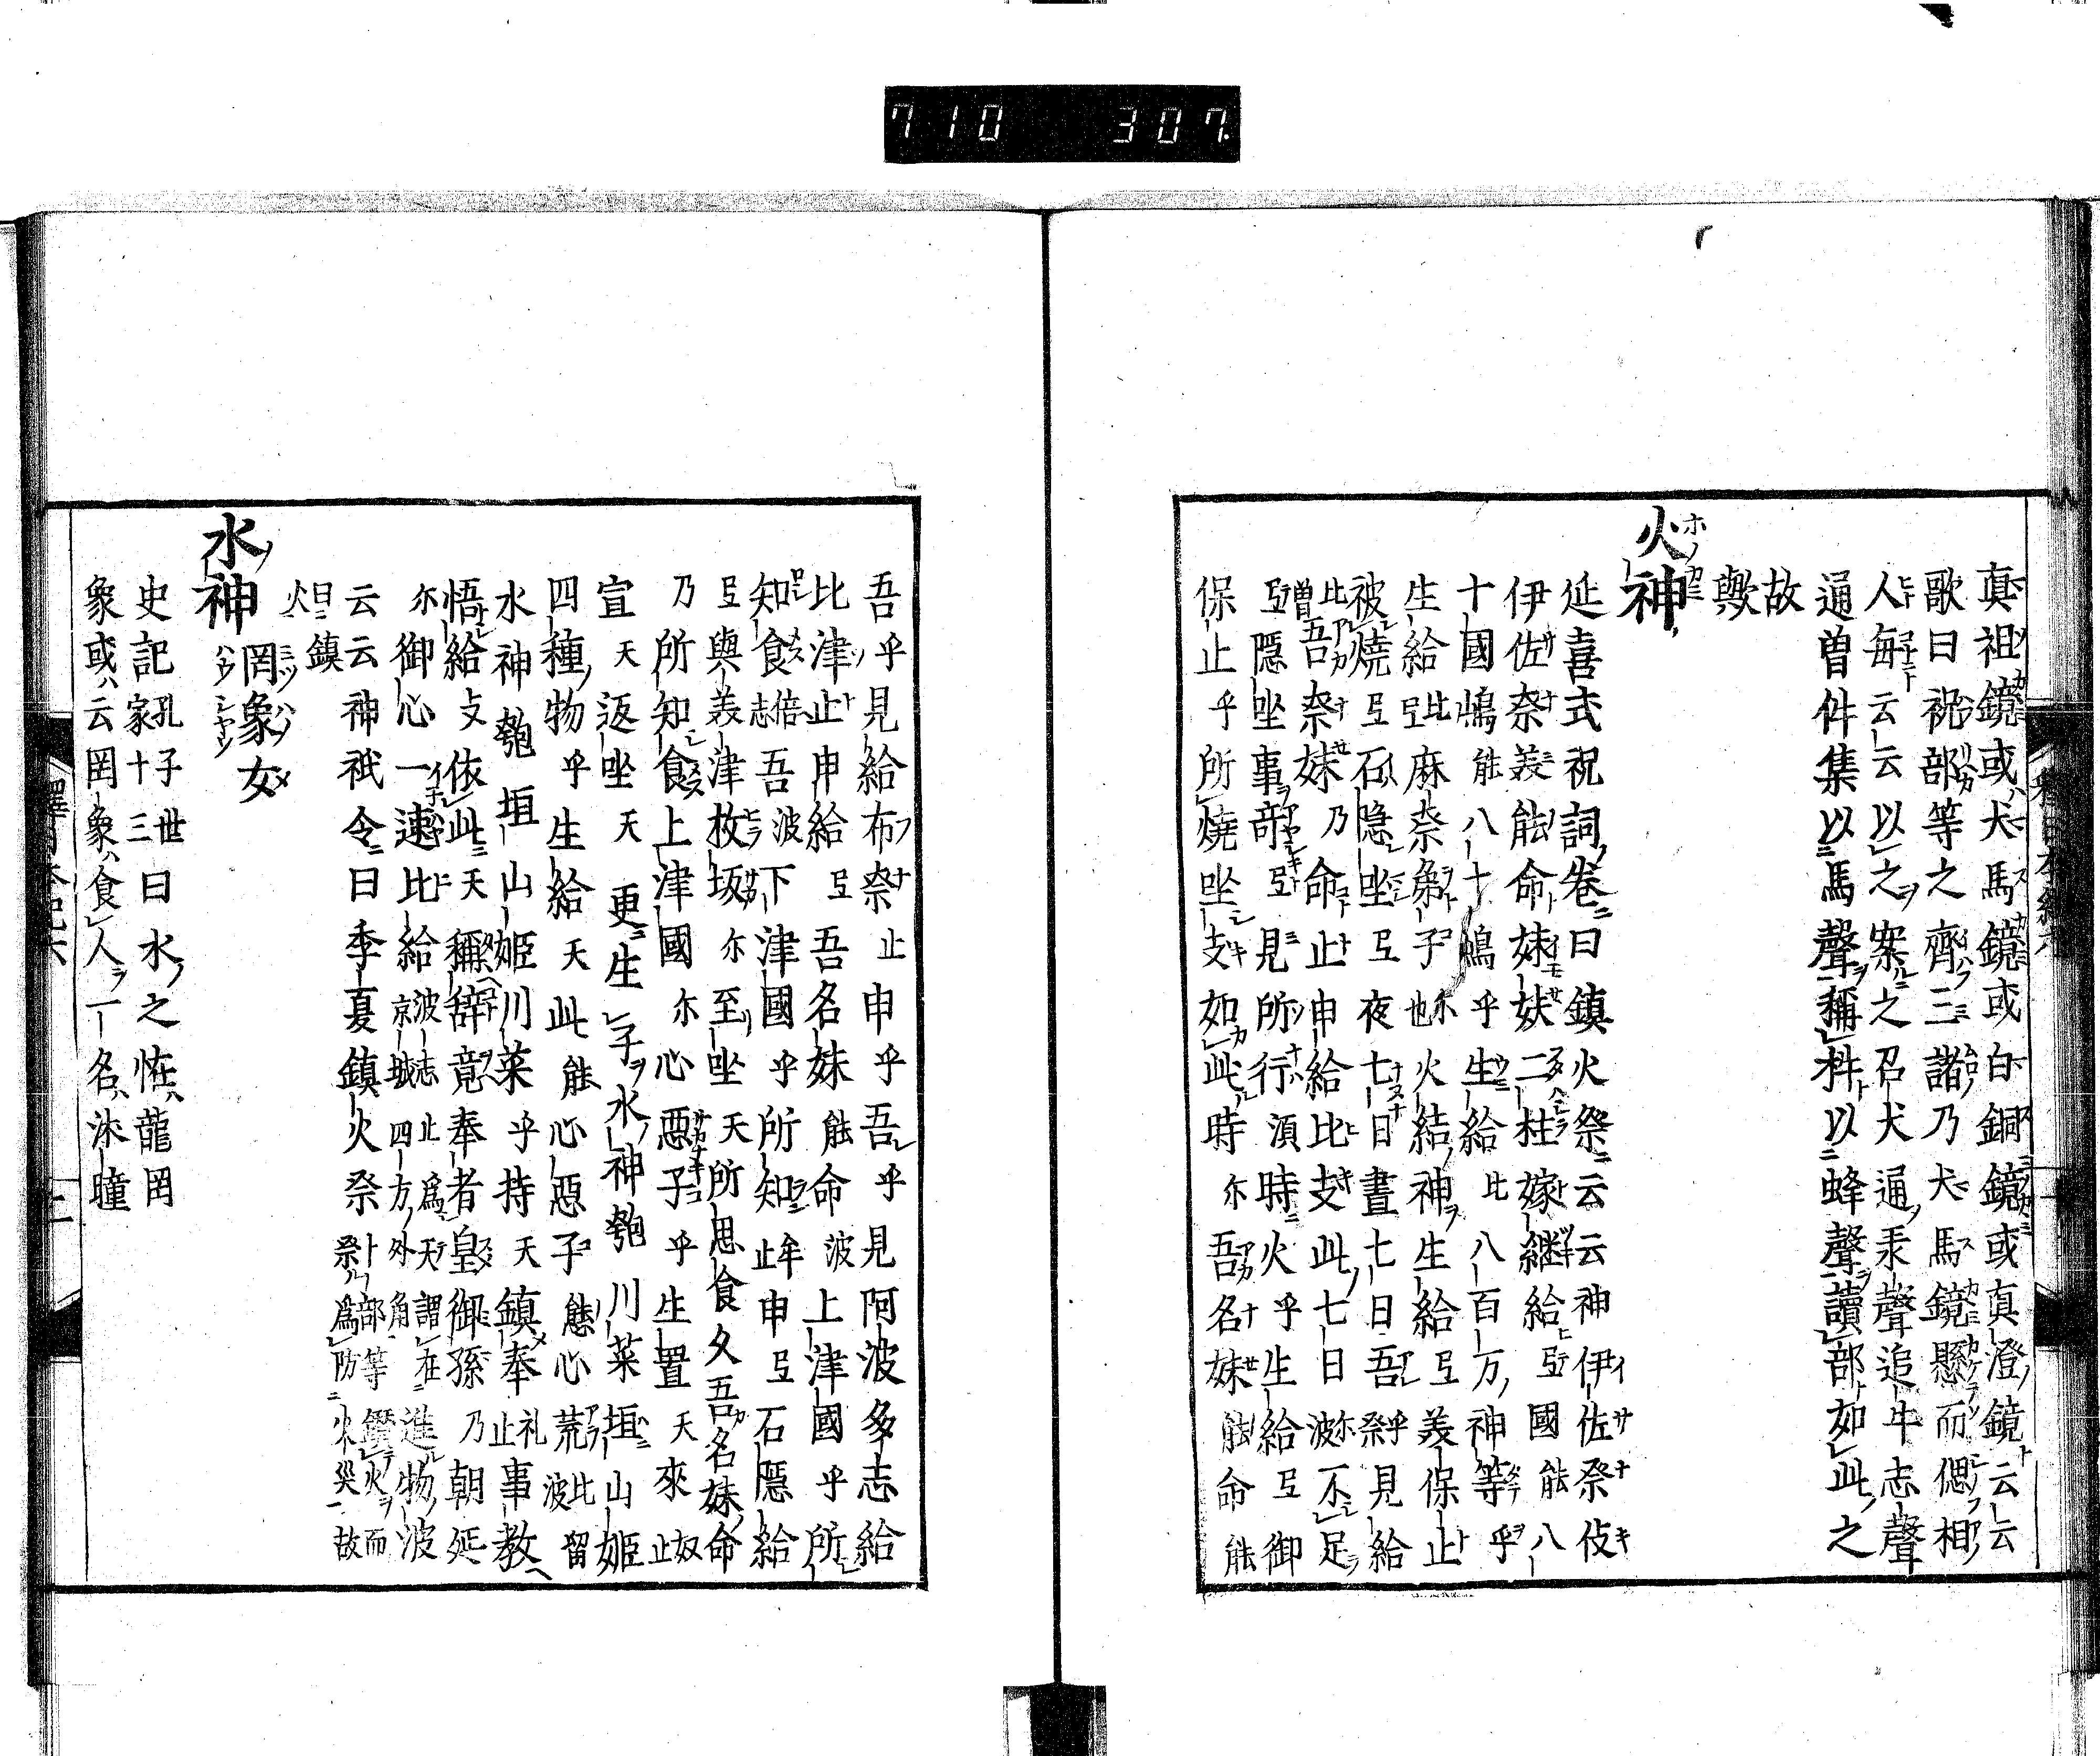 710 307
真祖鏡或犬馬鏡或白銅鏡或真澄鏡云云
歌曰祝部等之齊三諸乃犬馬鏡懸而偲相
人毎云云以之案之召犬通乗聲追牛志聲
通曽件集以馬聲稱枡以蜂聲讀部如此之
故
歟
火神
延喜式祝詞卷曰鎮火祭云云神伊佐奈伎
伊佐奈美能命妹妋二柱嫁継給氐國能八
十國嶋能八十嶋乎生給比八百万神等乎
生給比氐麻奈弟子尓也火結神生給氐美保止
被燒氐石隠坐氐夜七日晝七日吾乎奈見給
比曽吾奈妹乃命止申給比支此七日尓波不足
氐隱坐事奇氐見所行湏時火乎生給氐御
保止乎所燒坐支如此時尓吾名妹能命能
吾乎見給布奈止申乎吾乎見阿波多志給
比津止申給氐吾名妹能命波上津國乎所
知食倍志吾波下津國乎所知牟止申氐石隱給
氐與美津枚坂尓至坐天所思食久吾名妹命
乃所知食上津國尓心惡子乎生置天來奴止
宣天返坐天更生子水神匏川菜垣山姫
四種物乎生給天此能心惡子能心荒比波留
水神匏垣山姫川菜乎持天鎮奉礼止事教
悟給支依此天稱辞竟奉者皇御孫乃朝延
尓御心一速比給波志止為天進物波
京城四方外角謂在
云云神祇令曰季夏鎮火祭
卜部等鑽火而
祭為防火災故
曰鎮
火
水神 罔象女
史記孔子世家十三曰水之恠龍罔
象或云罔象食人一名沐瞳